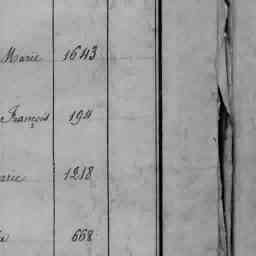 Marie 1643
François 194
arie 1218
668